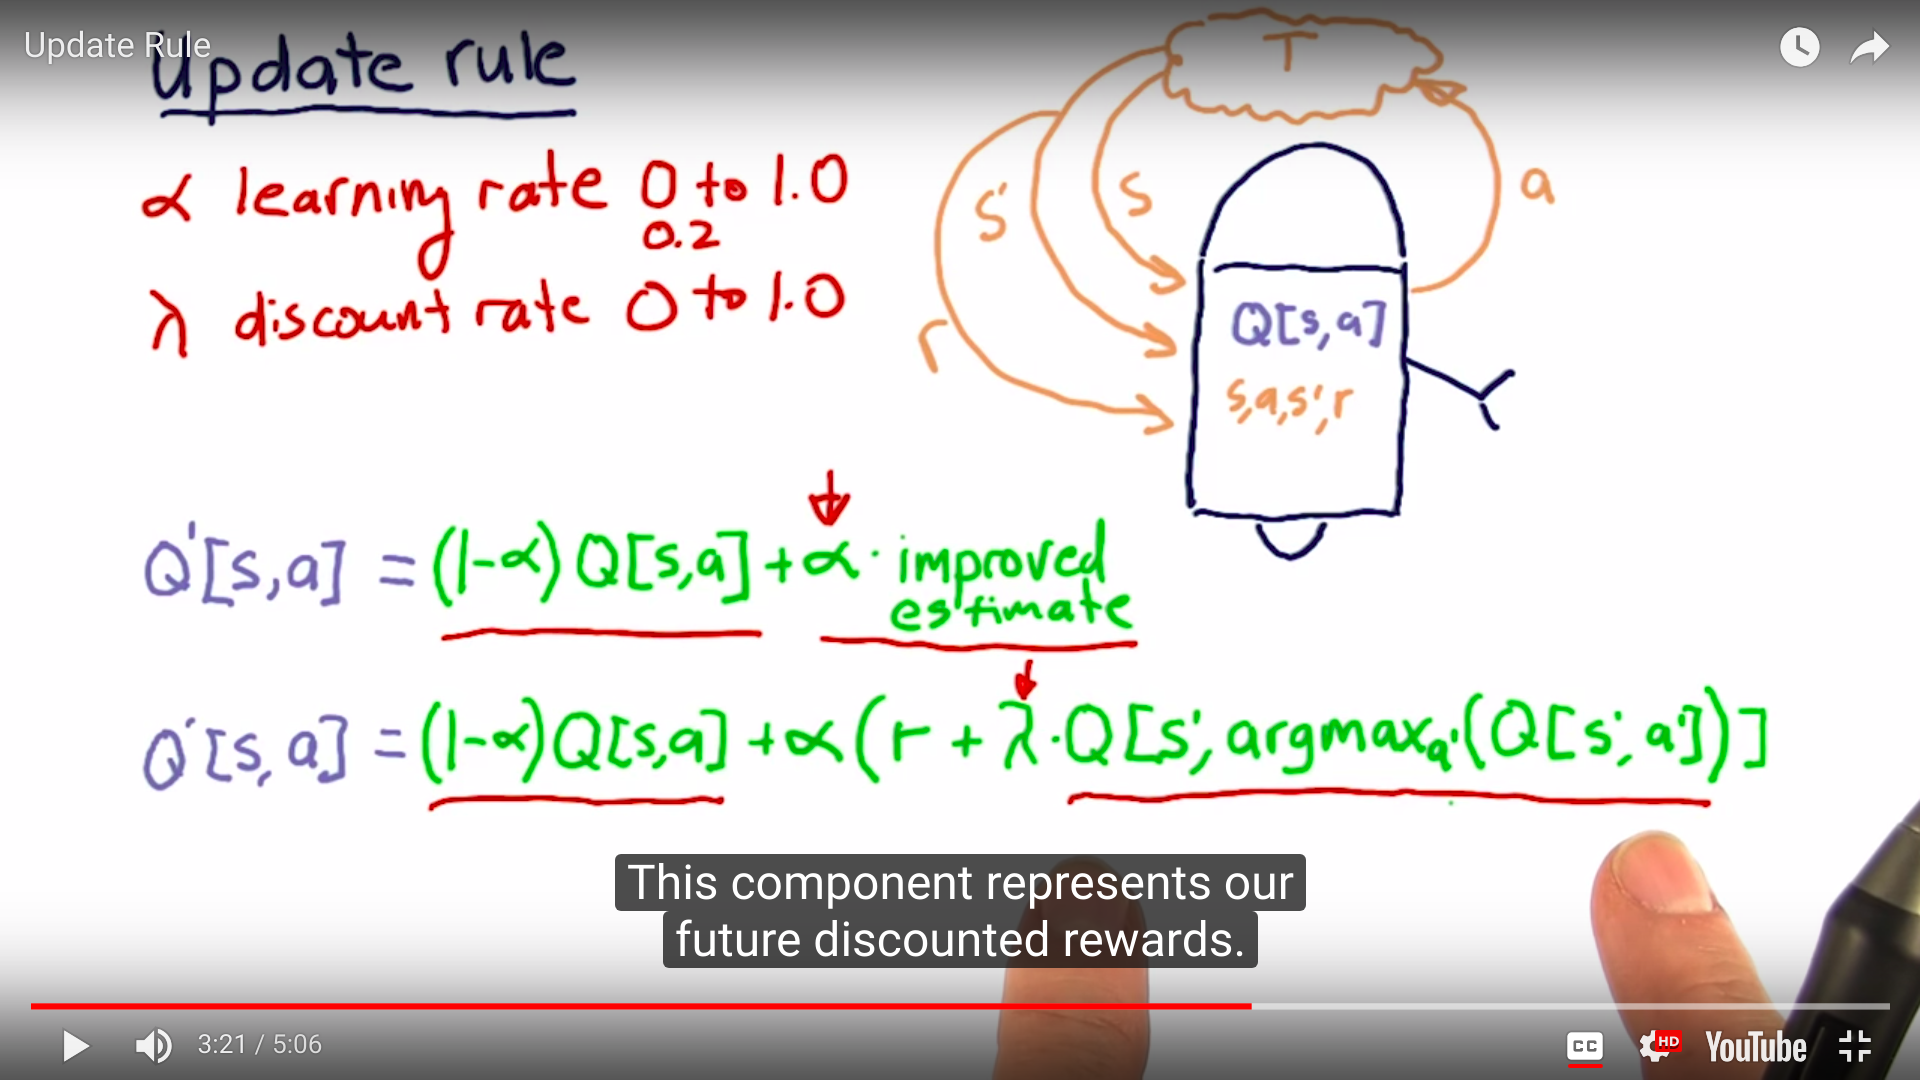 Update Rule
Update rule
T
α learning rate 0 to 1.0
0.2
λ discount rate 0 to 1.0
s'
s
a
r
Q[s,a]
s,a,s',r
Q'[s,a] = (1-α) Q[s,a] + α · improved
estimate
Q'[s,a] = (1-α) Q[s,a] + α (r + λ · Q[s', argmaxₐ'(Q[s',a'])]
This component represents our
future discounted rewards.
3:21 / 5:06
CC
HD
YouTube